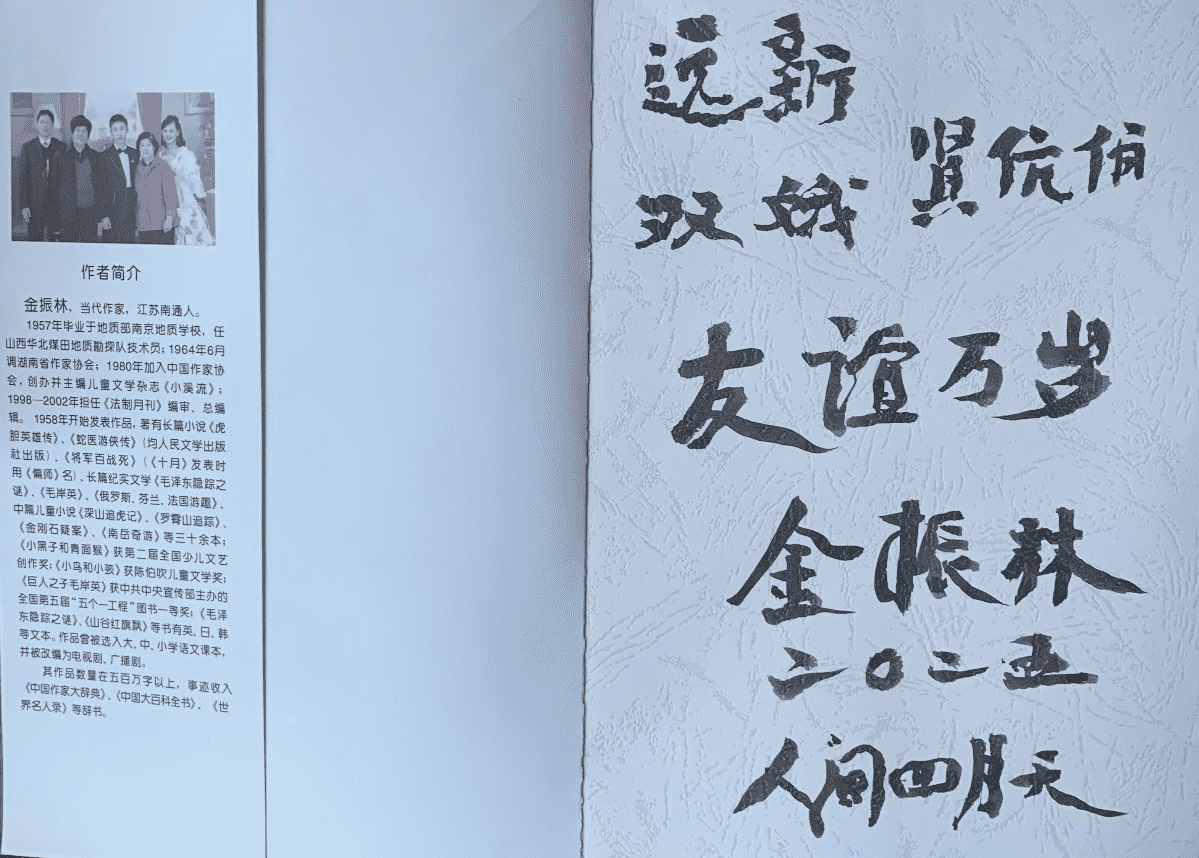 作者简介
金振林，当代作家，江苏南通人。
1957年毕业于地质部南京地质学校，任
山西华北煤田地质勘探队技术员；1964年6月
调湖南省作家协会；1980年加入中国作家协
会，创办并主编儿童文学杂志《小溪流》；
1998—2002年担任《法制月刊》编审、总编
辑。 1958年开始发表作品，著有长篇小说《虎
胆英雄传》、《蛇医游侠传》（均人民文学出版
社出版）、《将军百战死》（《十月》发表时
用《偏师》名）、长篇纪实文学《毛泽东隐踪之
谜》、《毛岸英》、《俄罗斯、芬兰、法国游趣》、
中篇儿童小说《深山追虎记》、《罗霄山追踪》、
《金刚石疑案》、《南岳奇游》等三十余本；
《小黑子和青面猴》获第二届全国少儿文艺
创作奖；《小鸟和小孩》获陈伯吹儿童文学奖；
《巨人之子毛岸英》获中共中央宣传部主办的
全国第五届“五个一工程”图书一等奖；《毛泽
东隐踪之谜》、《山谷红旗飘》等书有英、日、韩
等文本。作品曾被选入大、中、小学语文课本，
并被改编为电视剧、广播剧。
其作品数量在五百万字以上，事迹收入
《中国作家大辞典》、《中国大百科全书》、《世
界名人录》等辞书。
远新
双娥
贤伉俪
友谊万岁
金振林
二〇二五
人间四月天